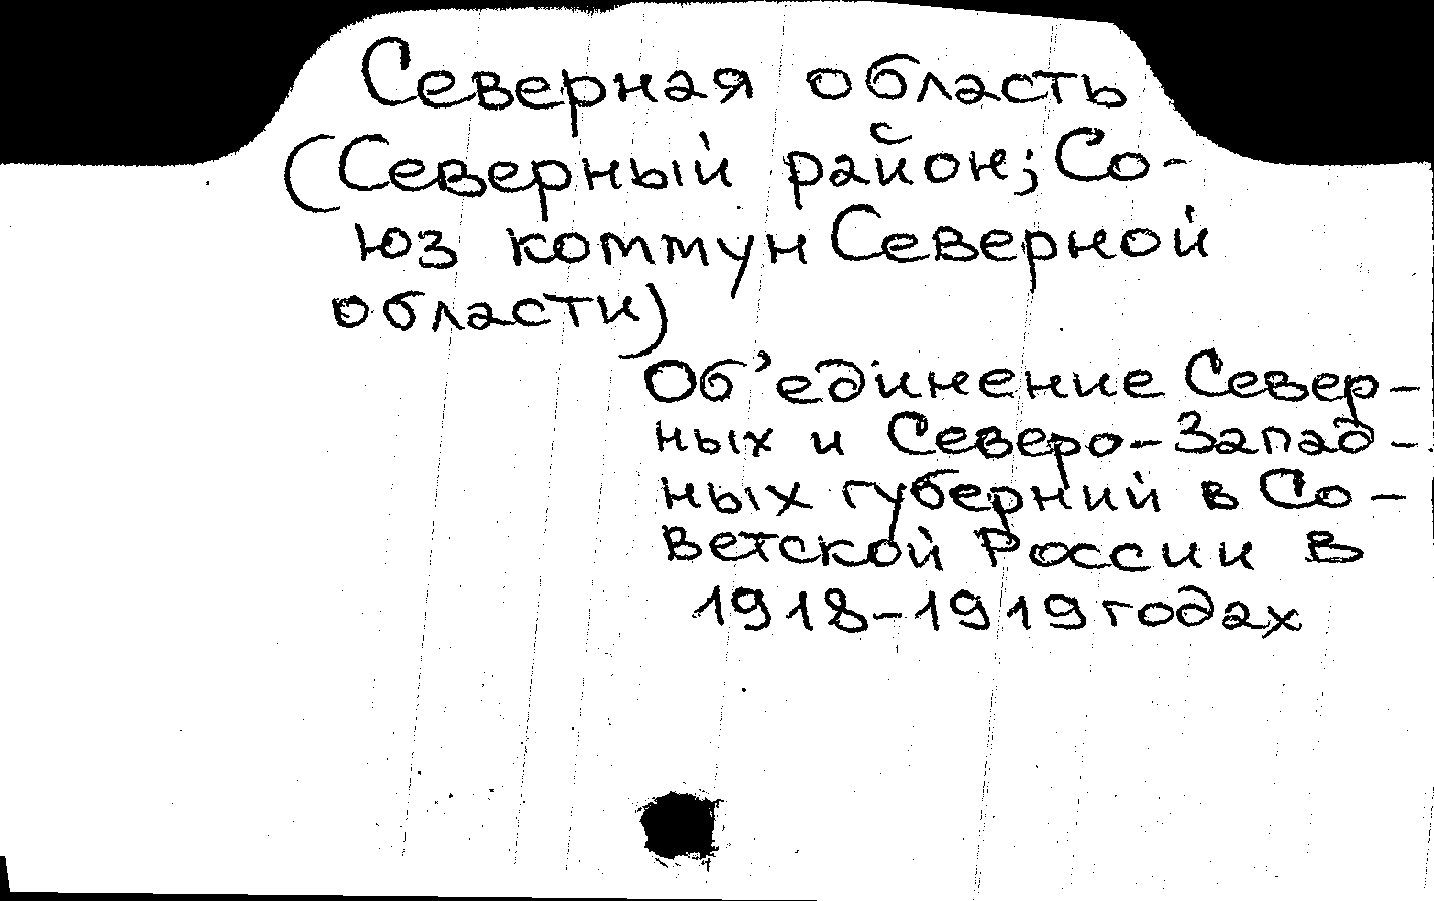 Северная область
(Северный район; Со-
юз коммун Северной
области)
Об'единение Север-
ных и Северо-Запад-
ных губерний в Со-
ветской России в
1918-1919 годах